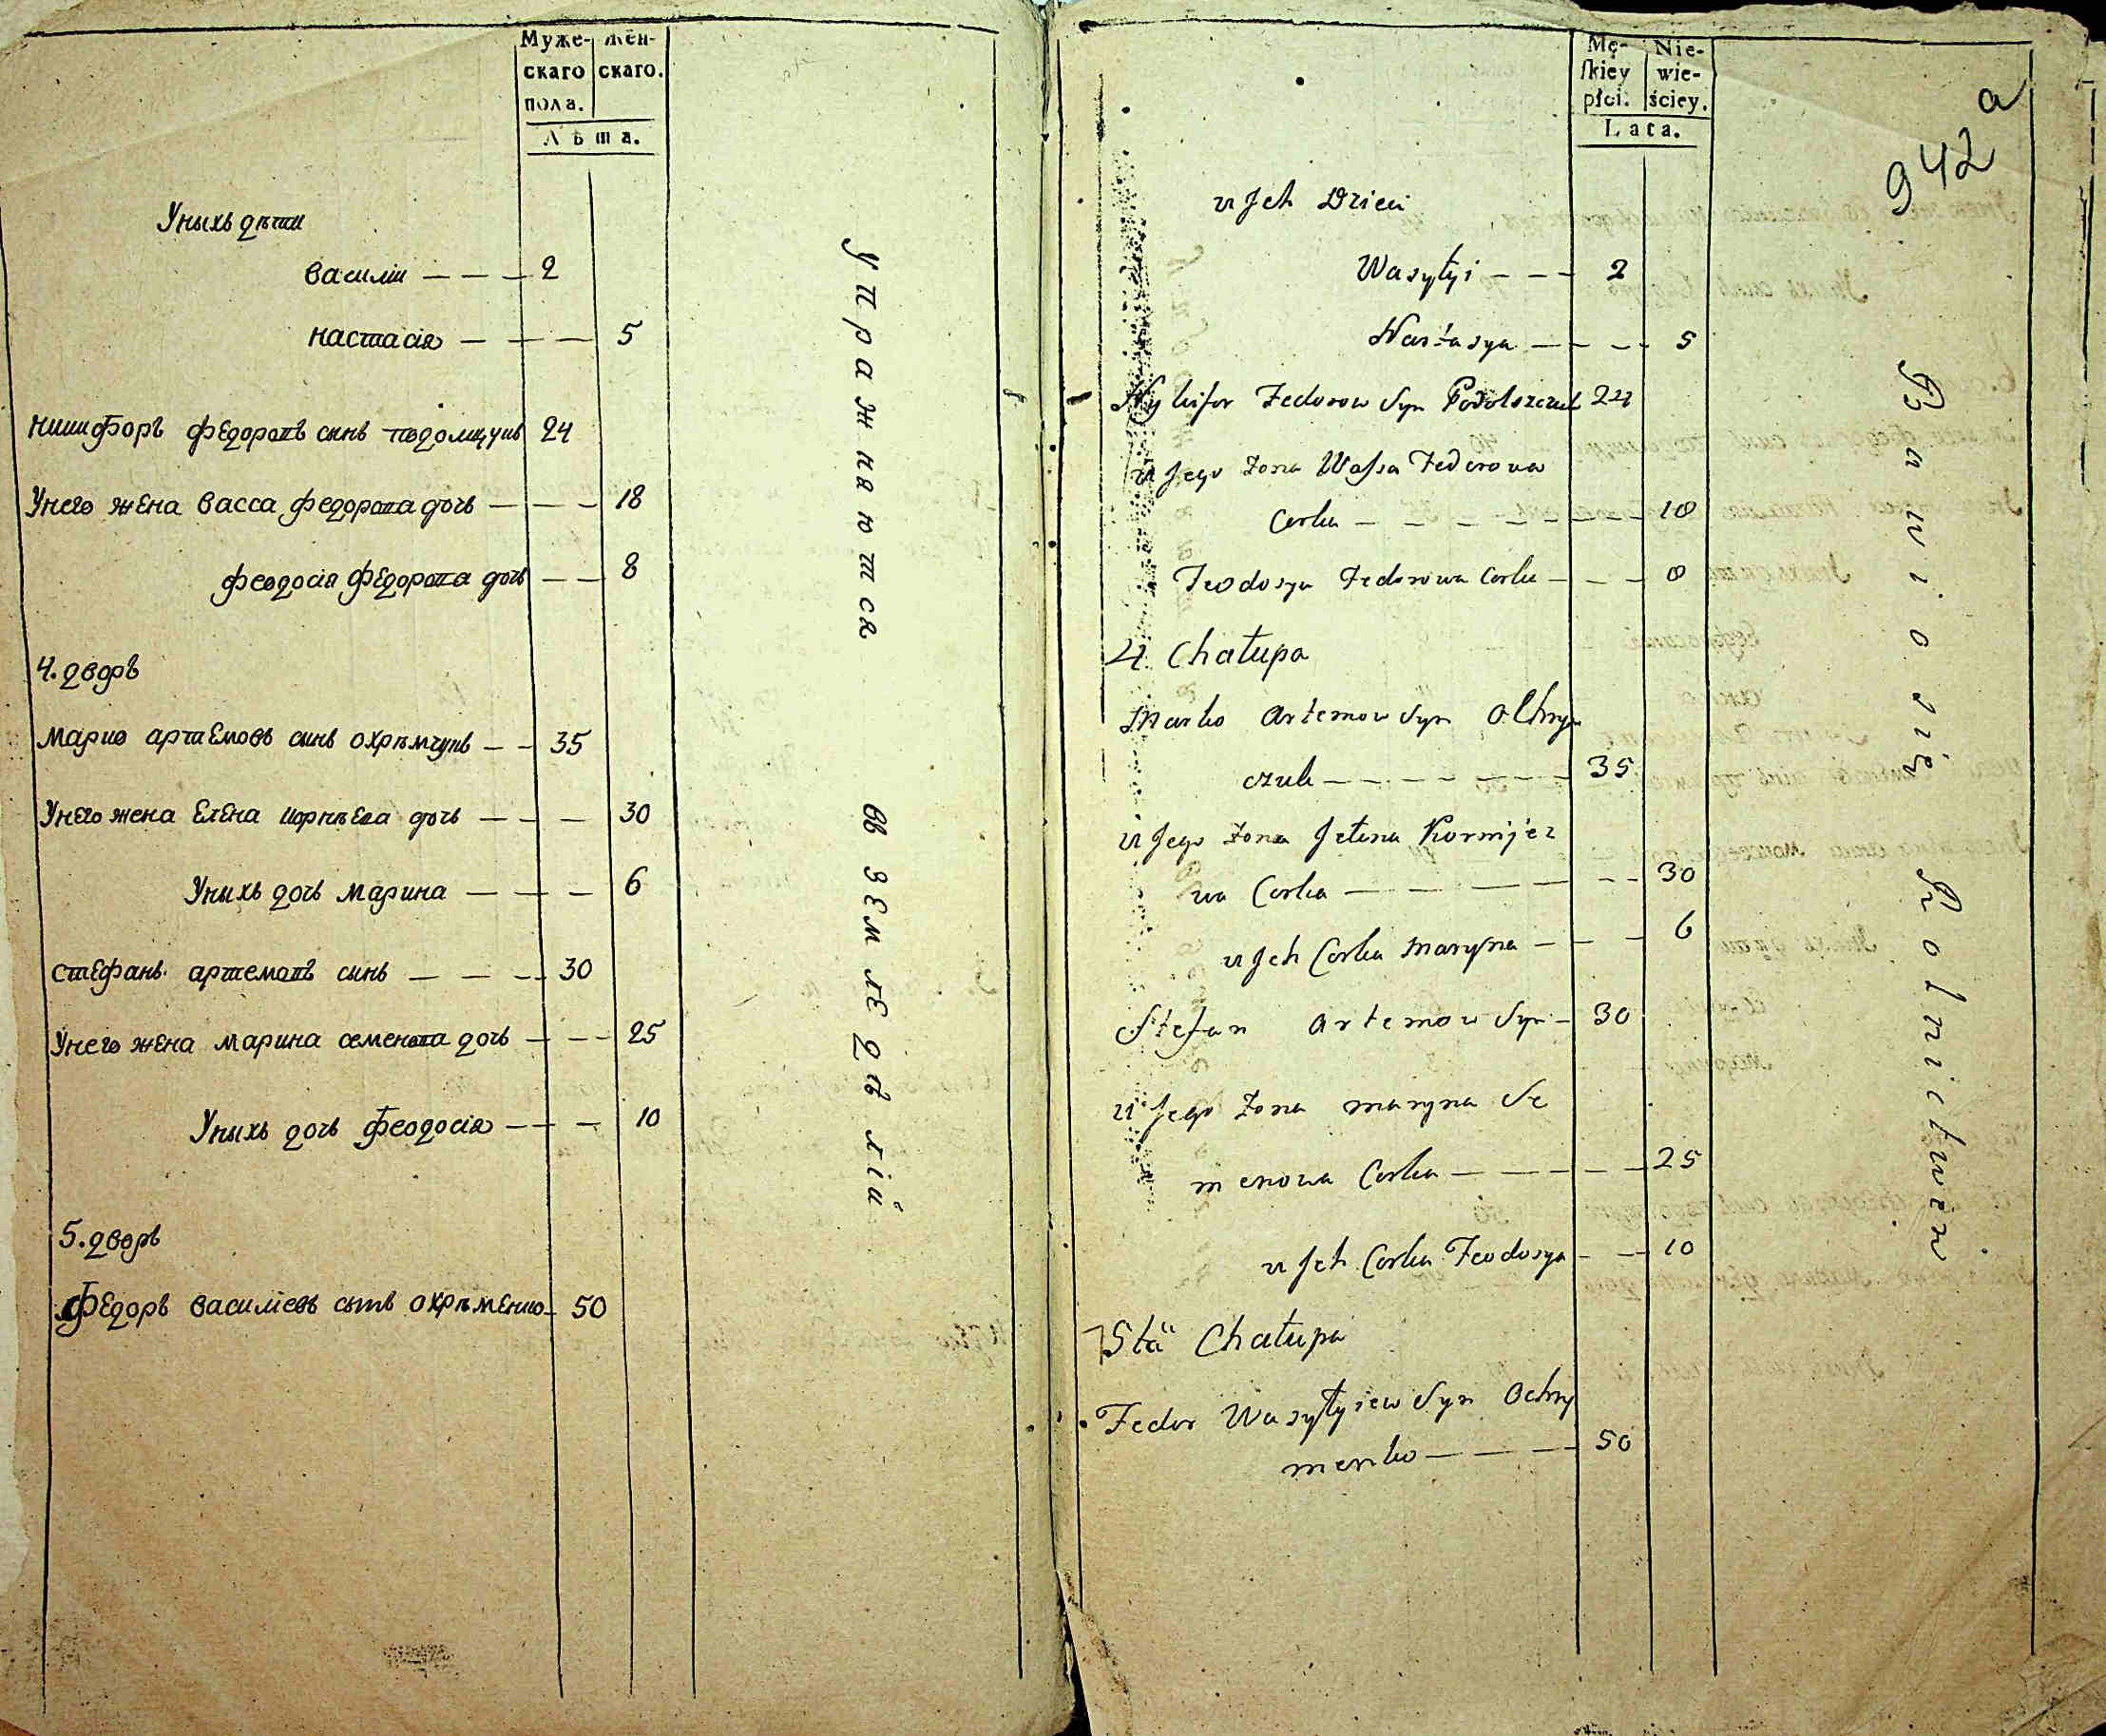 Муже- жен-
скаго скаго.
пола.
Лѣта.
Уныхъ дѣти
василіи — — — 2
настасія — — — 5
никифоръ федоровъ синъ подолщукъ 24
Унего жена васса федорова дочь — — — 18
феодосія федорова дочь — — 8
4. дворъ
марко артемовъ синъ охрѣмчукъ — — 35
Унего жена елена корнѣева дочь — — — 30
Уныхъ дочь марина — — — 6
стефанъ артемовъ сынъ — — — 30
Унего жена марина семенова дочь — — — 25
Уныхъ дочь феодосія — — — 10
5. дворъ
федоръ василіевъ сынъ охрѣменко 50
Упражняются въ земледѣлій
Mę- Nie-
skiey wie-
płci. ściey.
Lata.
942 a
u Jch Dzieci
Wasyłyi — — — 2
Nastasya — — — 5
Nykifor Fedorow Syn Podolszczuk 24
u Jego Zona Wassa Fedorowa
Corka — — — — — — 18
Feodosya Fedorowa Corka — — — 8
4 Chałupa
Marko Artemow Syn Ochry
czuk — — — — — — 35
u Jego Zona Jełena Kornijez
wa Corka — — — — — — 30
u Jch Corka Maryna — — — 6
Stefan Artemow Syn — 30
u Jego Zona Maryna Se
menowa Corka — — — — — 25
u Jch Corka Feodosya — — 10
5ta Chałupa
Fedor Wasyłyiew Syn Ochry
menko — — — — 50
Bawio się Rolnictwem